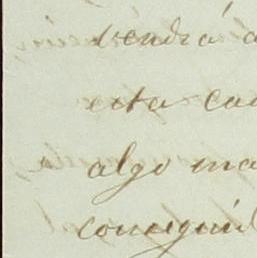 vendrá a
esta ca
algo ma
conseguid